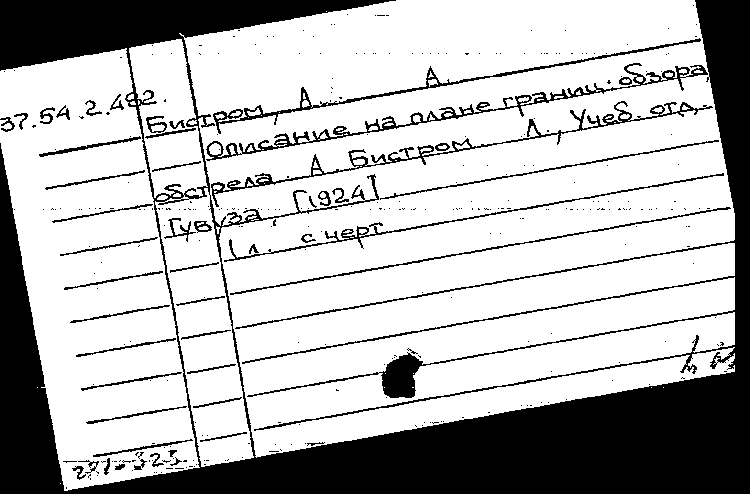 37.54.2.482.
Бистром, А. А.
Описание на плане границ: обзора
обстрела. А. Бистром. Л., Учеб. отд.
Гувуза, [1924].
1 л. с черт
291-323